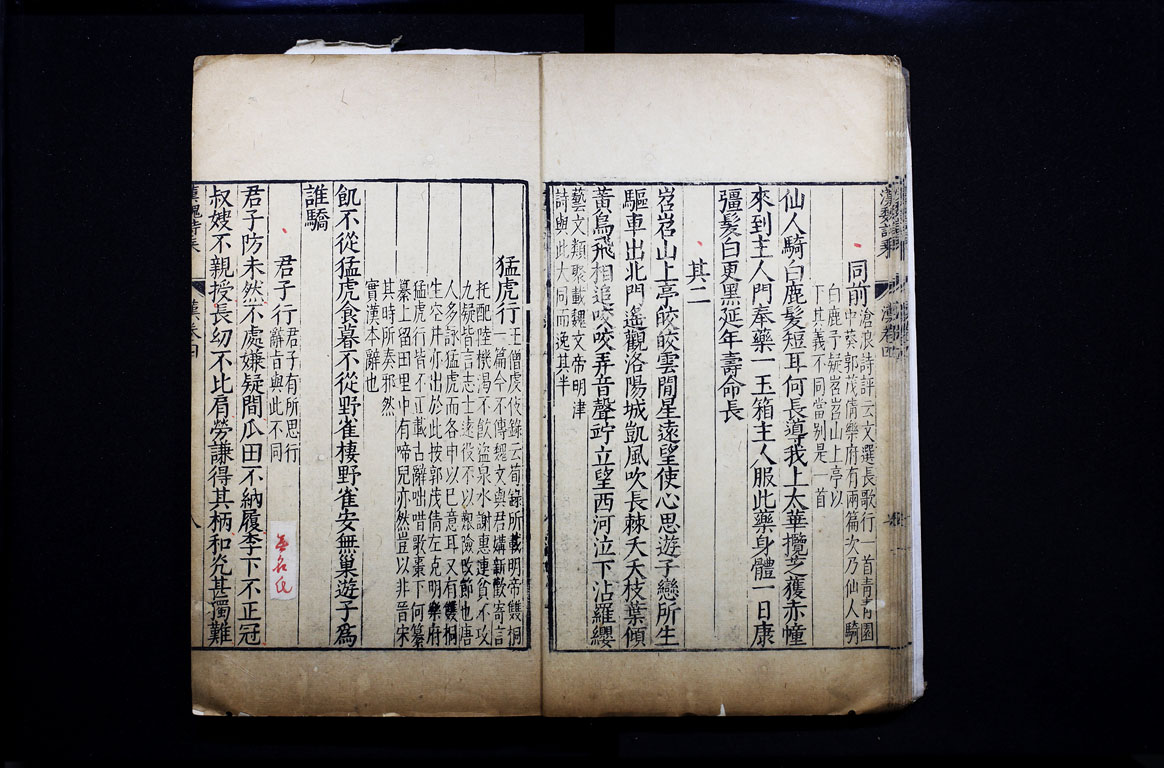 漢魏詩乘 漢卷四
同前 滄浪詩評云文選長歌行一首青青園
中葵郭茂倩樂府有兩篇次乃仙人騎
白鹿予疑岧岧山上亭以
下其義不同當別是一首
仙人騎白鹿髮短耳何長導我上太華攬芝獲赤幢
來到主人門奉藥一玉箱主人服此藥身體一日康
彊髮白更黑延年壽命長
其二
岧岧山上亭皎皎雲閒星遠望使心思遊子戀所生
驅車出北門遙觀洛陽城凱風吹長棘夭夭枝葉傾
黃鳥飛相追咬咬弄音聲竚立望西河泣下沾羅纓
藝文類聚載魏文帝明津
詩與此大同而逸其半
猛虎行 王僧虔伎錄云荀錄所載明帝雙桐
一篇今不傳魏文與君媾新歡寄言
托配陸機渴不飲盜泉水謝惠連貧不攻
九疑皆言志士遠役不以艱險改節也唐
人多詠猛虎而各申以己意耳又有雙桐
生空井亦出於此按郭茂倩左克明樂府
猛虎行皆不正載古辭咄唶歌棗下何纂
纂上留田里中有啼兒亦然豈以非晉宋
其時所奏邪然
實漢本辭也
飢不從猛虎食暮不從野雀棲野雀安無巢遊子為
誰驕
君子行 君子有所思行
辭旨與此不同
無名氏
君子防未然不處嫌疑間瓜田不納履李下不正冠
叔嫂不親授長幼不比肩勞謙得其柄和光甚獨難
漢魏詩乘 漢卷四 八